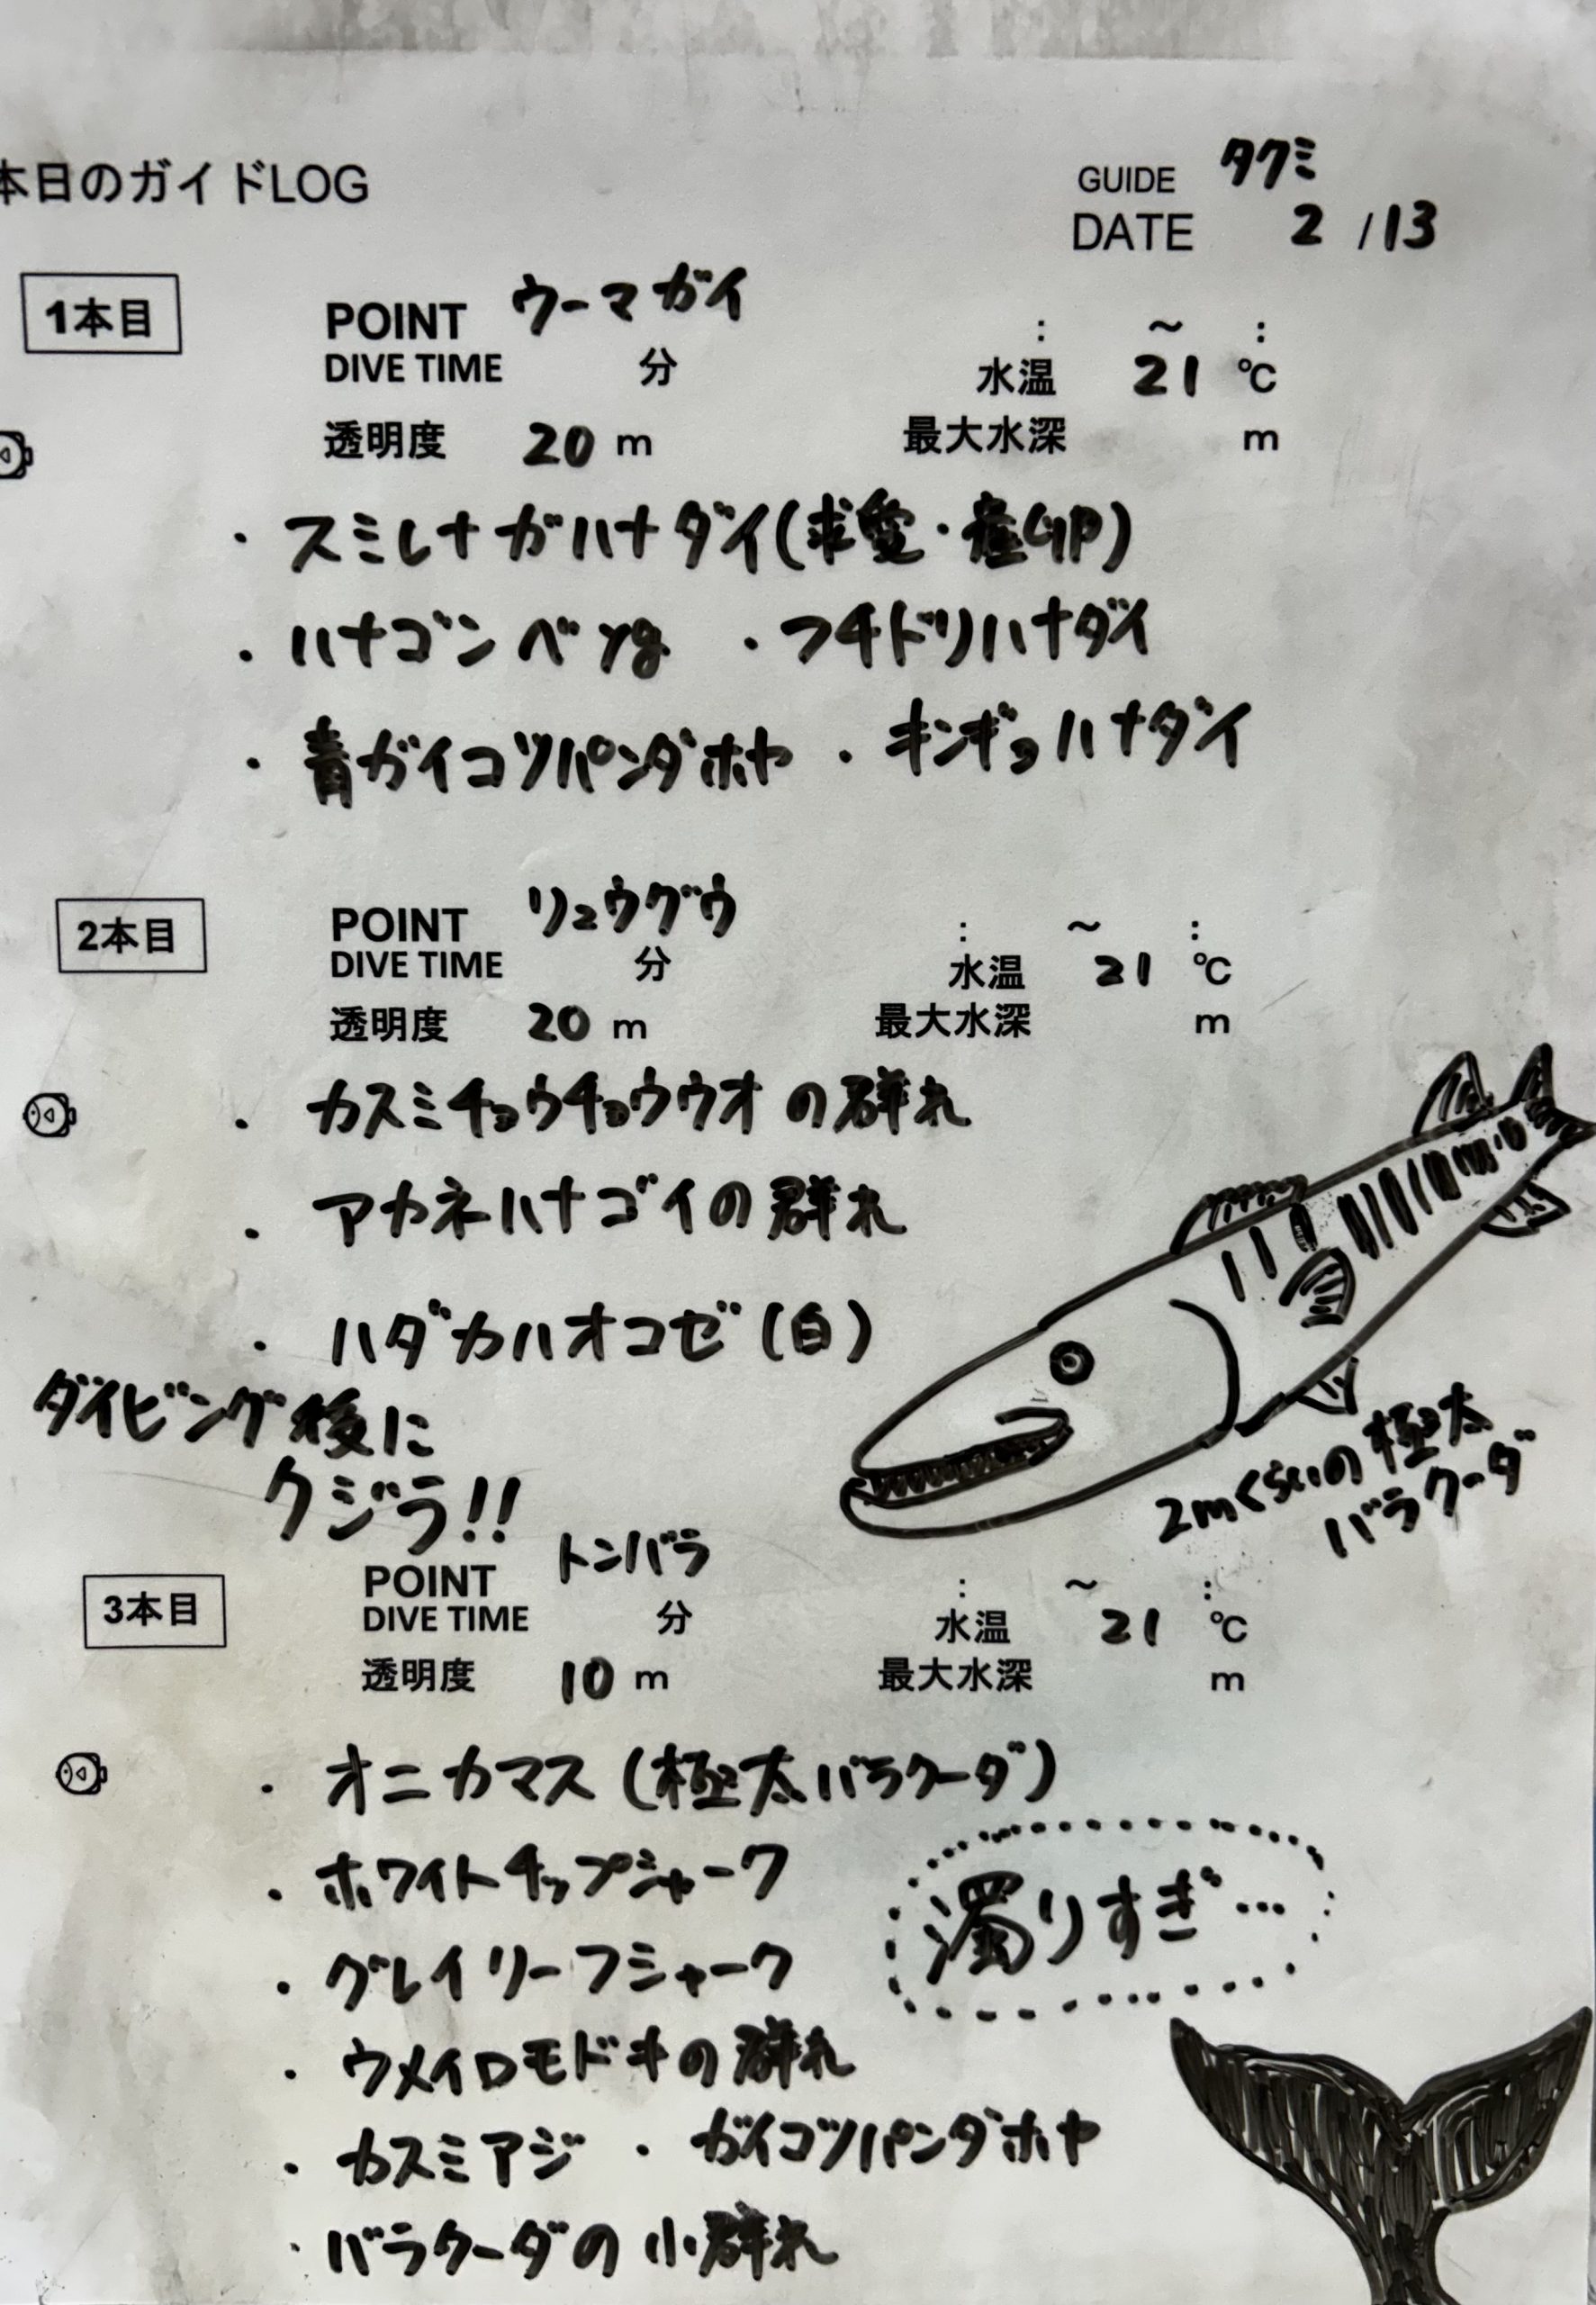 本日のガイドLOG
GUIDE タクミ
DATE 2 / 13
1本目
POINT ウーマガイ : ～ :
DIVE TIME 分 水温 21 ℃
透明度 20 m 最大水深 m
・スミレナガハナダイ(求愛・産卵)
・ハナゴンベyg ・フチドリハナダイ
・青ガイコツパンダホヤ ・キンギョハナダイ
2本目
POINT リュウグウ : ～ :
DIVE TIME 分 水温 21 ℃
透明度 20 m 最大水深 m
・カスミチョウチョウウオの群れ
・アカネハナゴイの群れ
・ハダカハオコゼ(白)
ダイビング後に
クジラ!!
2mくらいの極太
バラクーダ
3本目
POINT トンバラ : ～ :
DIVE TIME 分 水温 21 ℃
透明度 10 m 最大水深 m
・オニカマス(極太バラクーダ)
・ホワイトチップシャーク
濁りすぎ…
・グレイリーフシャーク
・ウメイロモドキの群れ
・カスミアジ ・ガイコツパンダホヤ
・バラクーダの小群れ